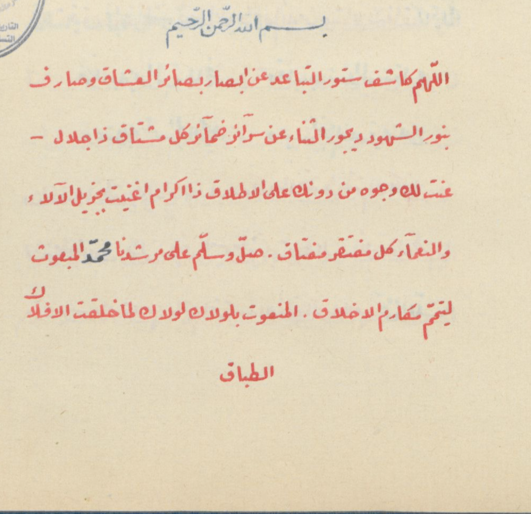 بسم الله الرحمن الرحيم
اللهم كاشف ستور التباعد عن ابصار بصائر العشاق وصارف
بنور الشهود ديجور الثناء عن سرآئر ضمآئر كل مشتاق ذا جلال –
عنت لك وجوه من دونك على الاطلاق ذا اكرام اغنيت بجزيل الآلاء
والنعمآء كل مفتقر مفتاق . صلّ وسلّم على مرشدنا محمّد المبعوث
ليتمّم مكارم الاخلاق . المنعوت بلولاك لولاك لما خلقت الافلاك
الطباق